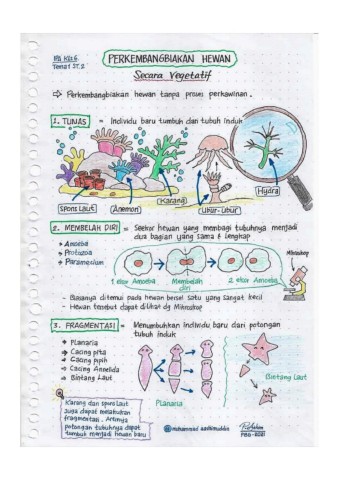 IPA Kls 6
Tema 1 ST. 2
PERKEMBANGBIAKAN HEWAN
Secara Vegetatif
⇨ Perkembangbiakan hewan tanpa proses perkawinan.
1. TUNAS = Individu baru tumbuh dari tubuh induk
Spons Laut
Anemon
Karang
Ubur-Ubur
Hydra
2. MEMBELAH DIRI = Seekor hewan yang membagi tubuhnya menjadi
dua bagian yang sama & lengkap
→ Amoeba
→ Protozoa
→ Paramecium
Mikroskop
1 ekor Amoeba
Membelah
diri
2 ekor Amoeba
- Biasanya ditemui pada hewan bersel satu yang sangat kecil
- Hewan tersebut dapat dilihat dg Mikroskop
3. FRAGMENTASI = Menumbuhkan individu baru dari potongan
tubuh induk
→ Planaria
→ Cacing pita
→ Cacing pipih
→ Cacing Annelida
→ Bintang Laut
Planaria
Bintang Laut
Karang dan spons laut
juga dapat melakukan
fragmentasi. Artinya
potongan tubuhnya dapat
tumbuh menjadi hewan baru